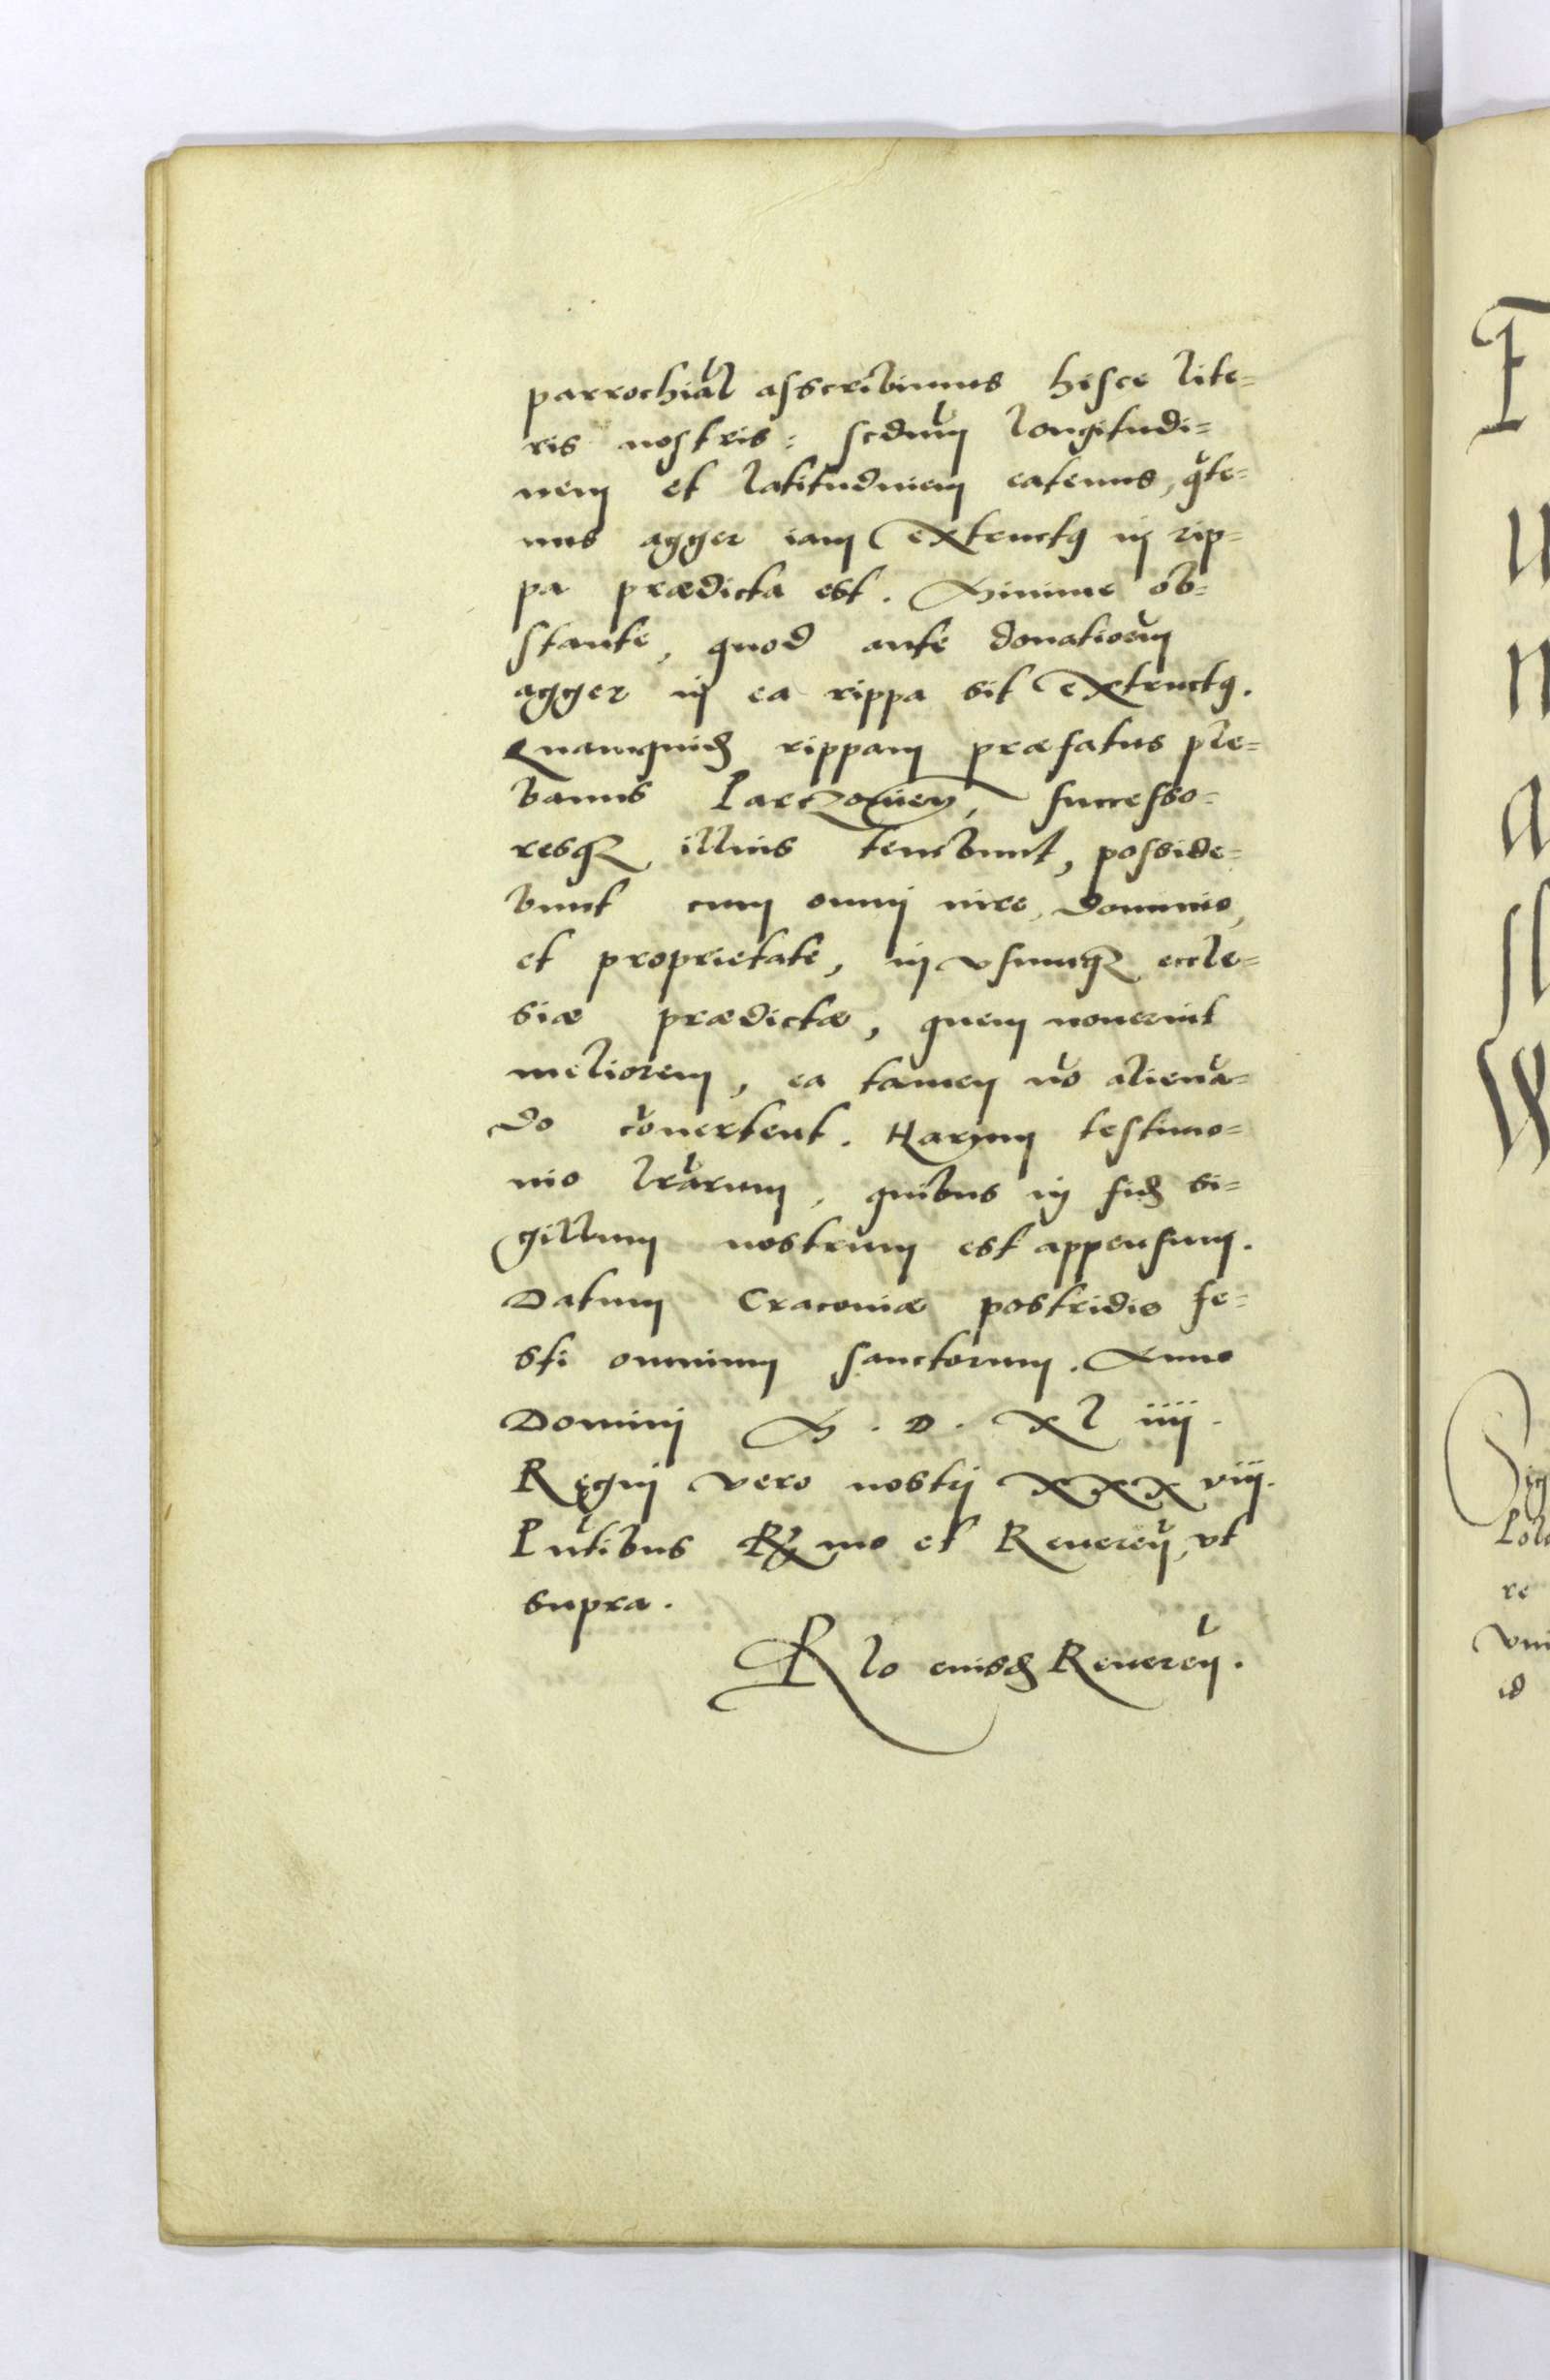 parrochial asscribimus hisce lite=
ris nostris: scdum longitudi=
nem et latitudinem eatenus, qte=
nus agger iam extructq in rip=
pa prædicta est. Minime ob=
stante, quod ante donatioem
agger in ea rippa sit extructq.
Quamquid rippam præfatus ple=
banus Parczouien, successo=
resq illius tenebunt, posside=
bunt cum omni iure, dominio,
et proprietate, in vsumq eccle=
siæ prædictæ, quem nouerint
meliorem, ea tamen no aliena=
do couertent. Harum testimo=
nio lrarum, quibus in fid si=
gillum nostrum est appensum.
Datum Cracouiæ postridie fe=
sti omnium sanctorum. Anno
Domini M. D. xl iiij.
Regni vero nostrj xxxviij.
Pntibus Rmo et Reueren, vt
supra.
Rlo eiusd Reueren.